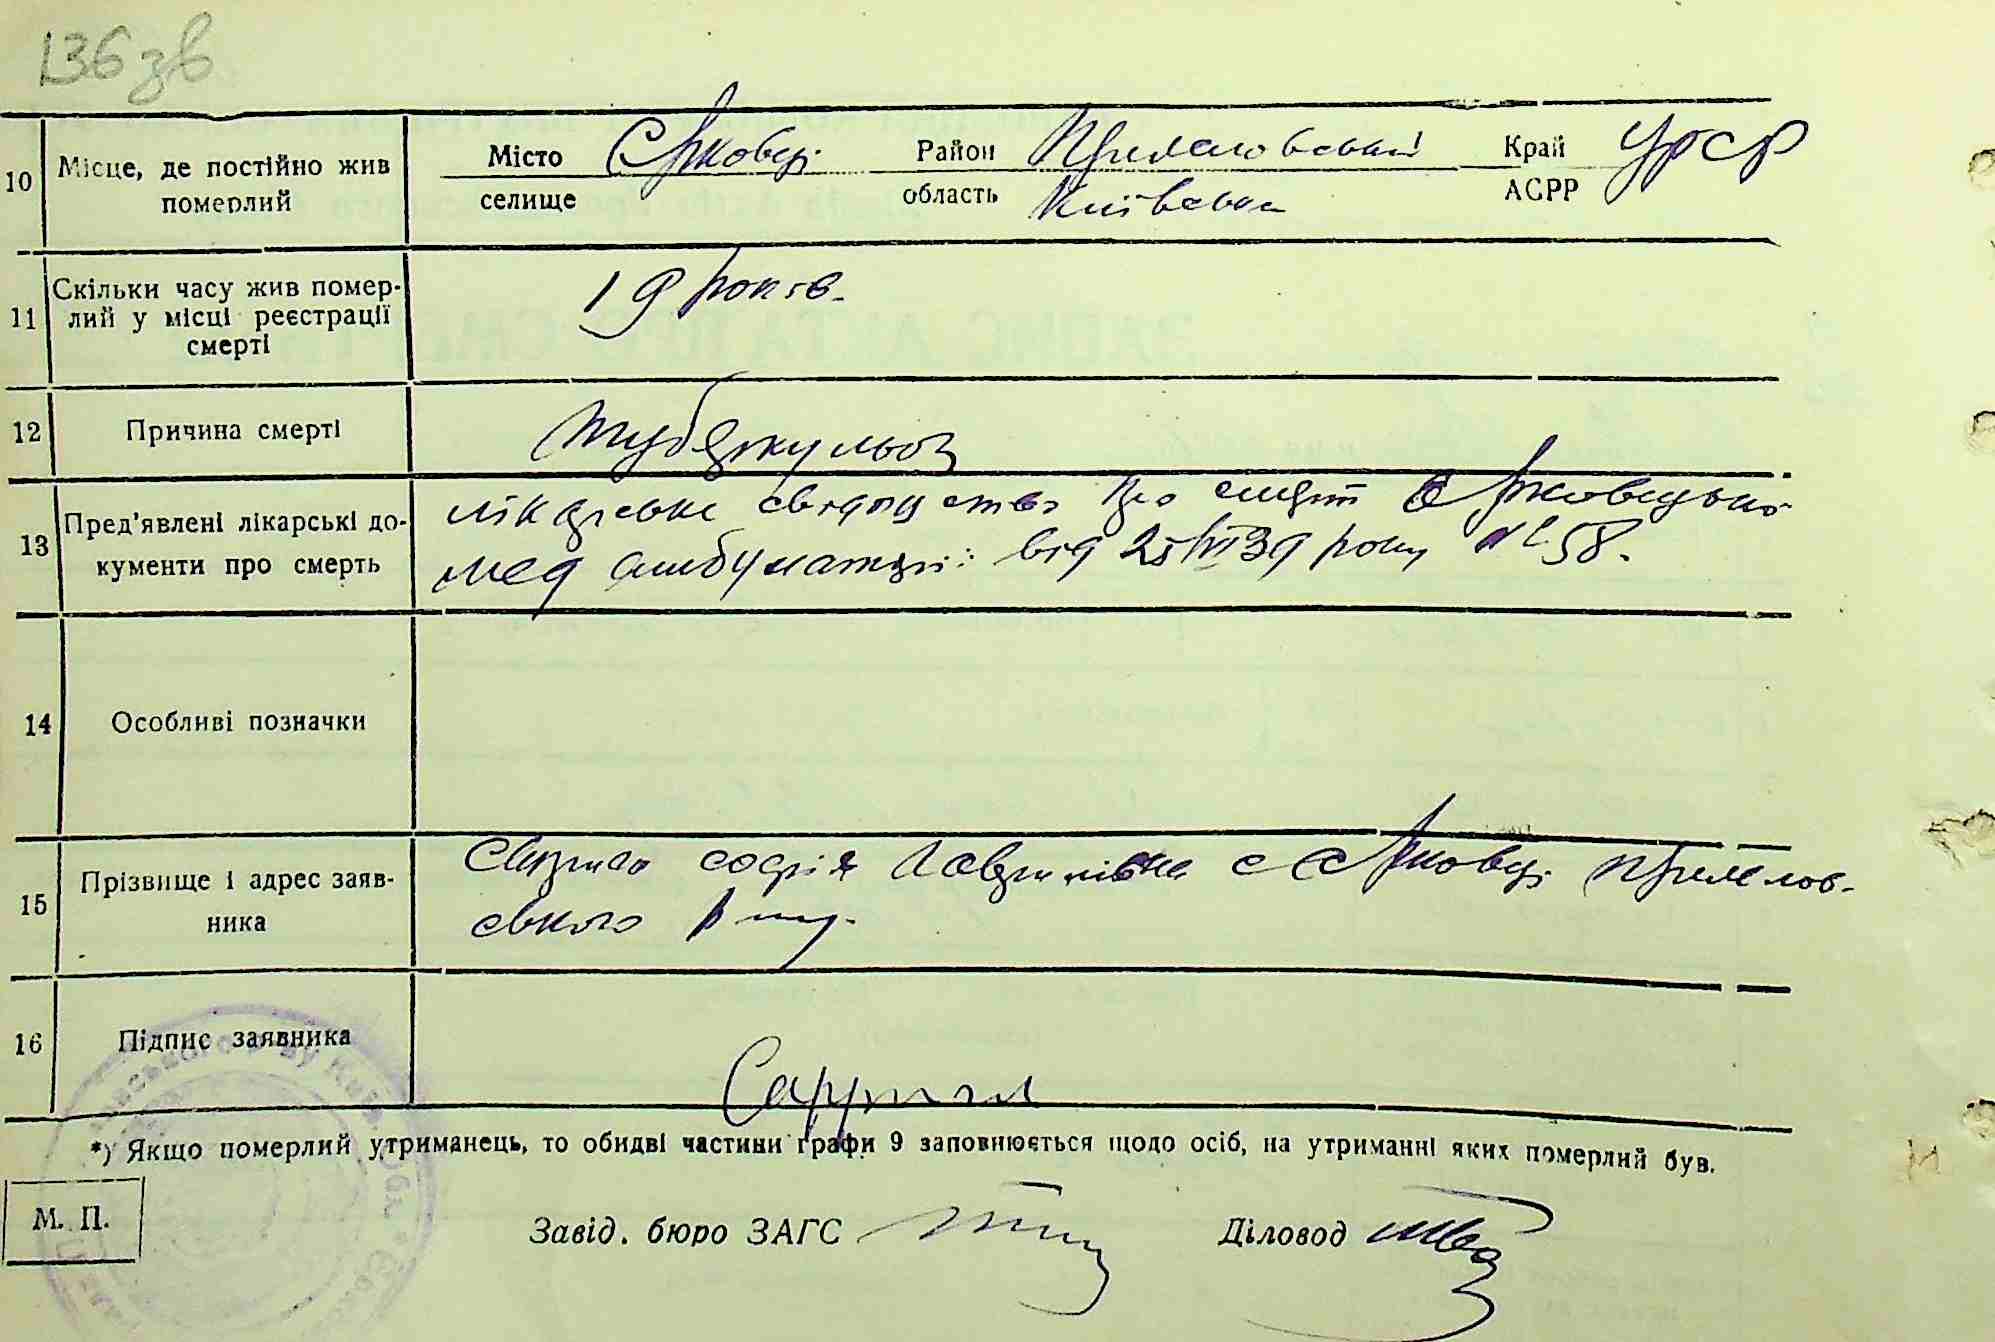 136 зв
10 Місце, де постійно жив померлий Місто селище Єрковці Район область Київська Край АСРР УРСР
11 Скільки часу жив померлий у місці реєстрації смерті 19 років.
12 Причина смерті туберкульоз
13 Пред'явлені лікарські до-
кументи про смерть
лікарське про смерть
мед амбулаторії від 25/VI 39 року № 58.
14 Особливі позначки
15 Прізвище і адрес заяв-
ника
Софія Гаврилівна с Єрковці
ського р-ну.
16 Підпис заявника
*) Якщо померлий утриманець, то обидві частини графи 9 заповнюється щодо осіб, на утриманні яких померлий був.
М. П. Завід. бюро ЗАГС Діловод